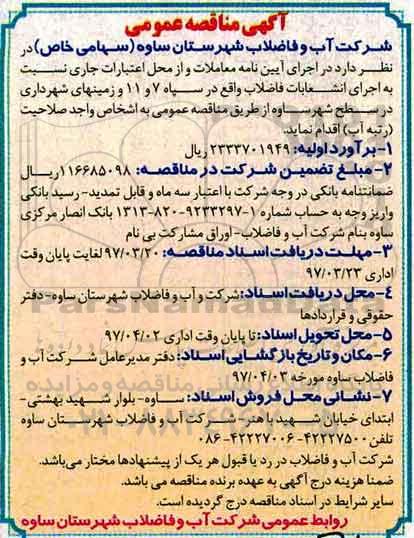 آگهی مناقصه عمومی
شرکت آب و فاضلاب شهرستان ساوه (سهامی خاص) در
نظر دارد در اجرای آیین نامه معاملات و از محل اعتبارات جاری نسبت
به اجرای انشعابات فاضلاب واقع در سپاه ۷ و ۱۱ و زمینهای شهرداری
در سطح شهر ساوه از طریق مناقصه عمومی به اشخاص واجد صلاحیت
(رتبه آب) اقدام نماید.
۱- برآورد اولیه: ۲۳۳۳۷۰۱۹۴۹ ریال
۲- مبلغ تضمین شرکت در مناقصه: ۱۱۶۶۸۵۰۹۸ ریال
ضمانتنامه بانکی در وجه شرکت با اعتبار سه ماه و قابل تمدید- رسید بانکی
واریز وجه به حساب شماره ۱-۹۲۳۳۲۹۷-۸۲۰-۱۳۱۳ بانک انصار مرکزی
ساوه بنام شرکت آب و فاضلاب- اوراق مشارکت بی نام
۳- مهلت دریافت اسناد مناقصه: ۹۷/۰۳/۲۰ لغایت پایان وقت
اداری ۹۷/۰۳/۲۳
۴- محل دریافت اسناد: شرکت و آب و فاضلاب شهرستان ساوه- دفتر
حقوقی و قراردادها
۵- محل تحویل اسناد: تا پایان وقت اداری ۹۷/۰۴/۰۲
۶- مکان و تاریخ بازگشایی اسناد: دفتر مدیرعامل شرکت آب و
فاضلاب ساوه مورخه ۹۷/۰۴/۰۳
۷- نشانی محل فروش اسناد: ساوه- بلوار شهید بهشتی-
ابتدای خیابان شهید باهنر- شرکت آب و فاضلاب شهرستان ساوه
تلفن ۴۲۲۲۷۵۰۰-۴۲۲۲۷۰۰۶-۰۸۶
شرکت آب و فاضلاب در رد یا قبول هر یک از پیشنهادها مختار می‌باشد.
ضمنا هزینه درج آگهی به عهده برنده مناقصه می باشد.
سایر شرایط در اسناد مناقصه درج گردیده است.
روابط عمومی شرکت آب و فاضلاب شهرستان ساوه